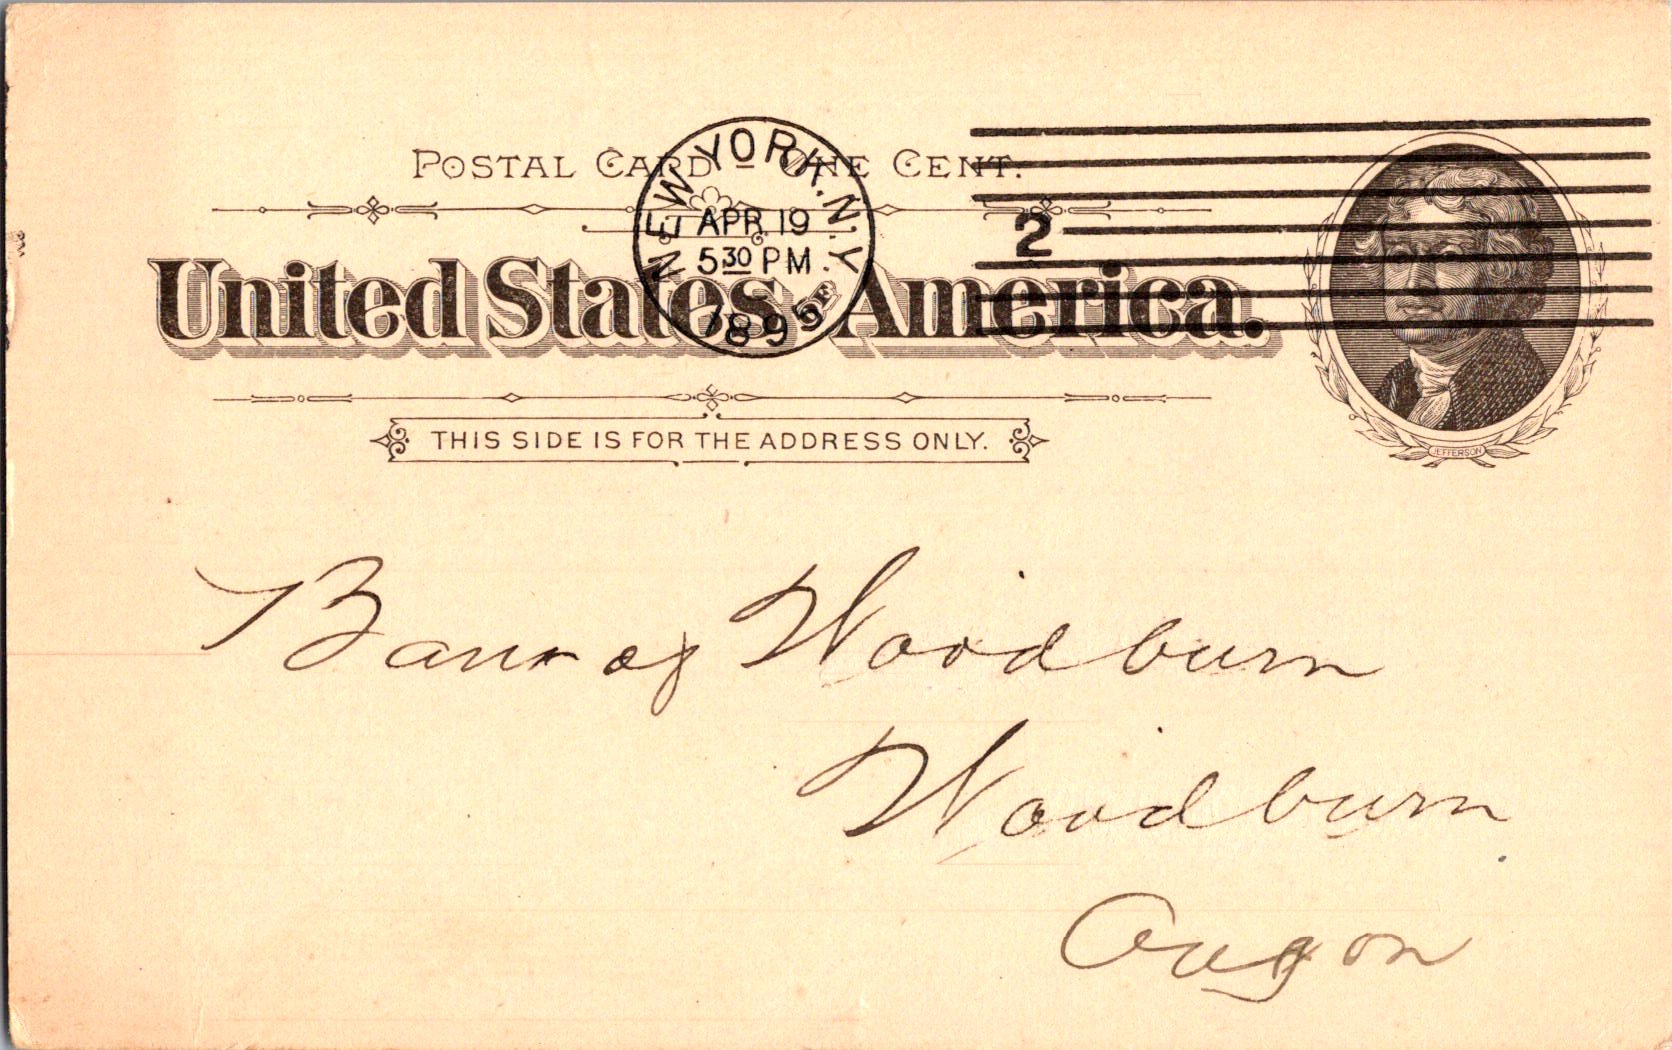 POSTAL CARD - ONE CENT.
NEW YORK, N.Y.
APR 19
5 30 PM
1895
2
United States of America.
JEFFERSON
THIS SIDE IS FOR THE ADDRESS ONLY.
Bank of Woodburn
Woodburn
Oregon